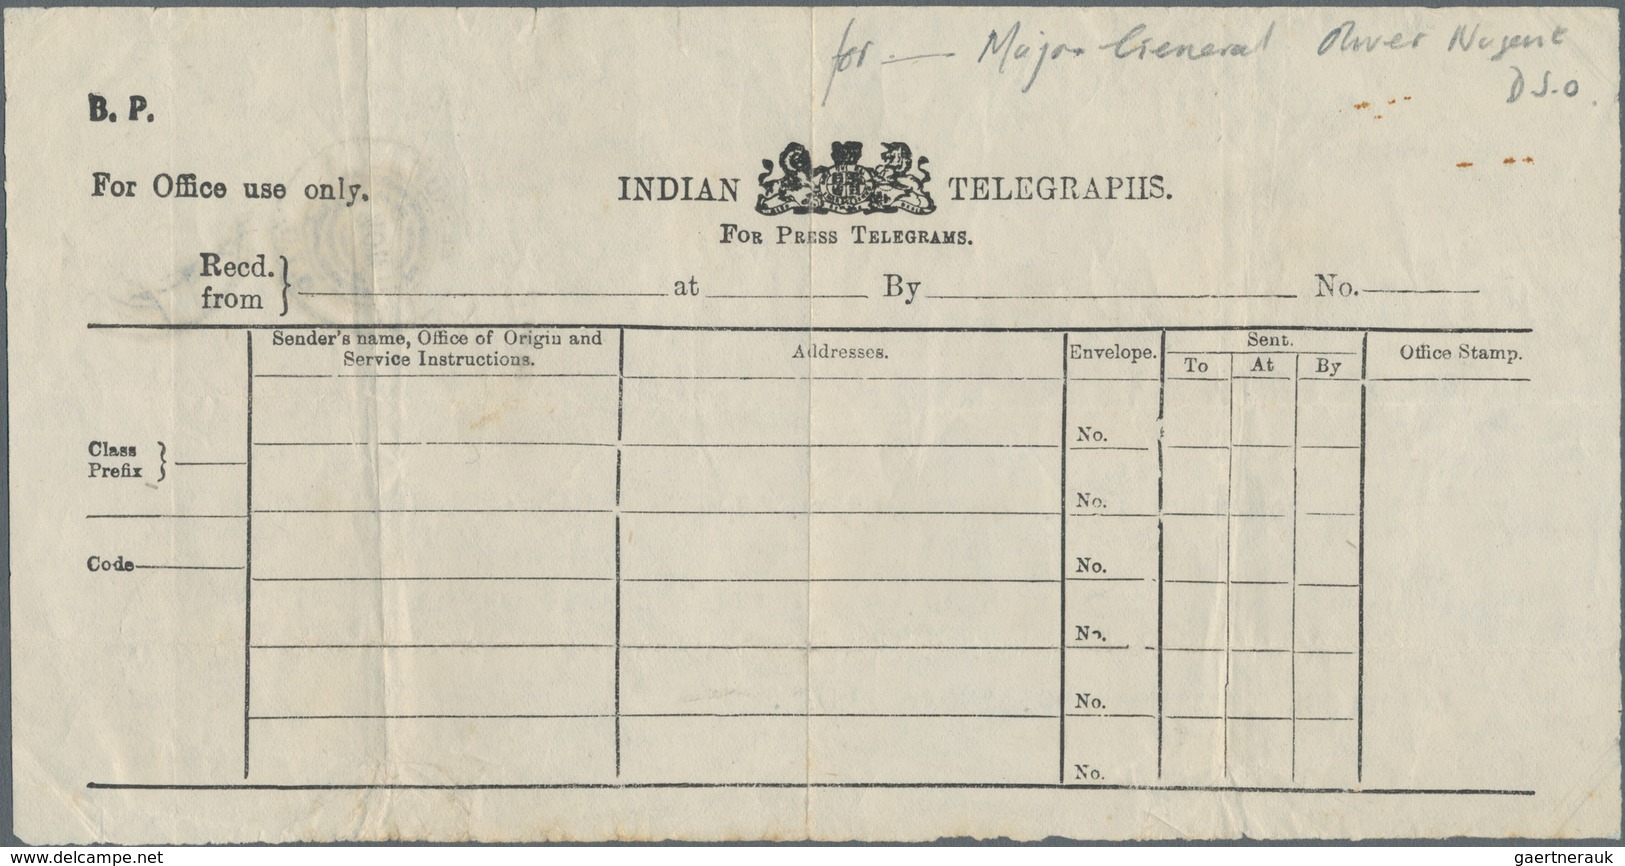 for — Major General Oliver Nugent
D.S.O.
B. P.
For Office use only.
INDIAN TELEGRAPHS.
FOR PRESS TELEGRAMS.
Recd. from } at By No.
Sender's name, Office of Origin and Service Instructions.
Addresses.
Envelope.
Sent.
To At By
Office Stamp.
Class Prefix }
Code
No.
No.
No.
No.
No.
No.
www.delcampe.net
gaertnerauk